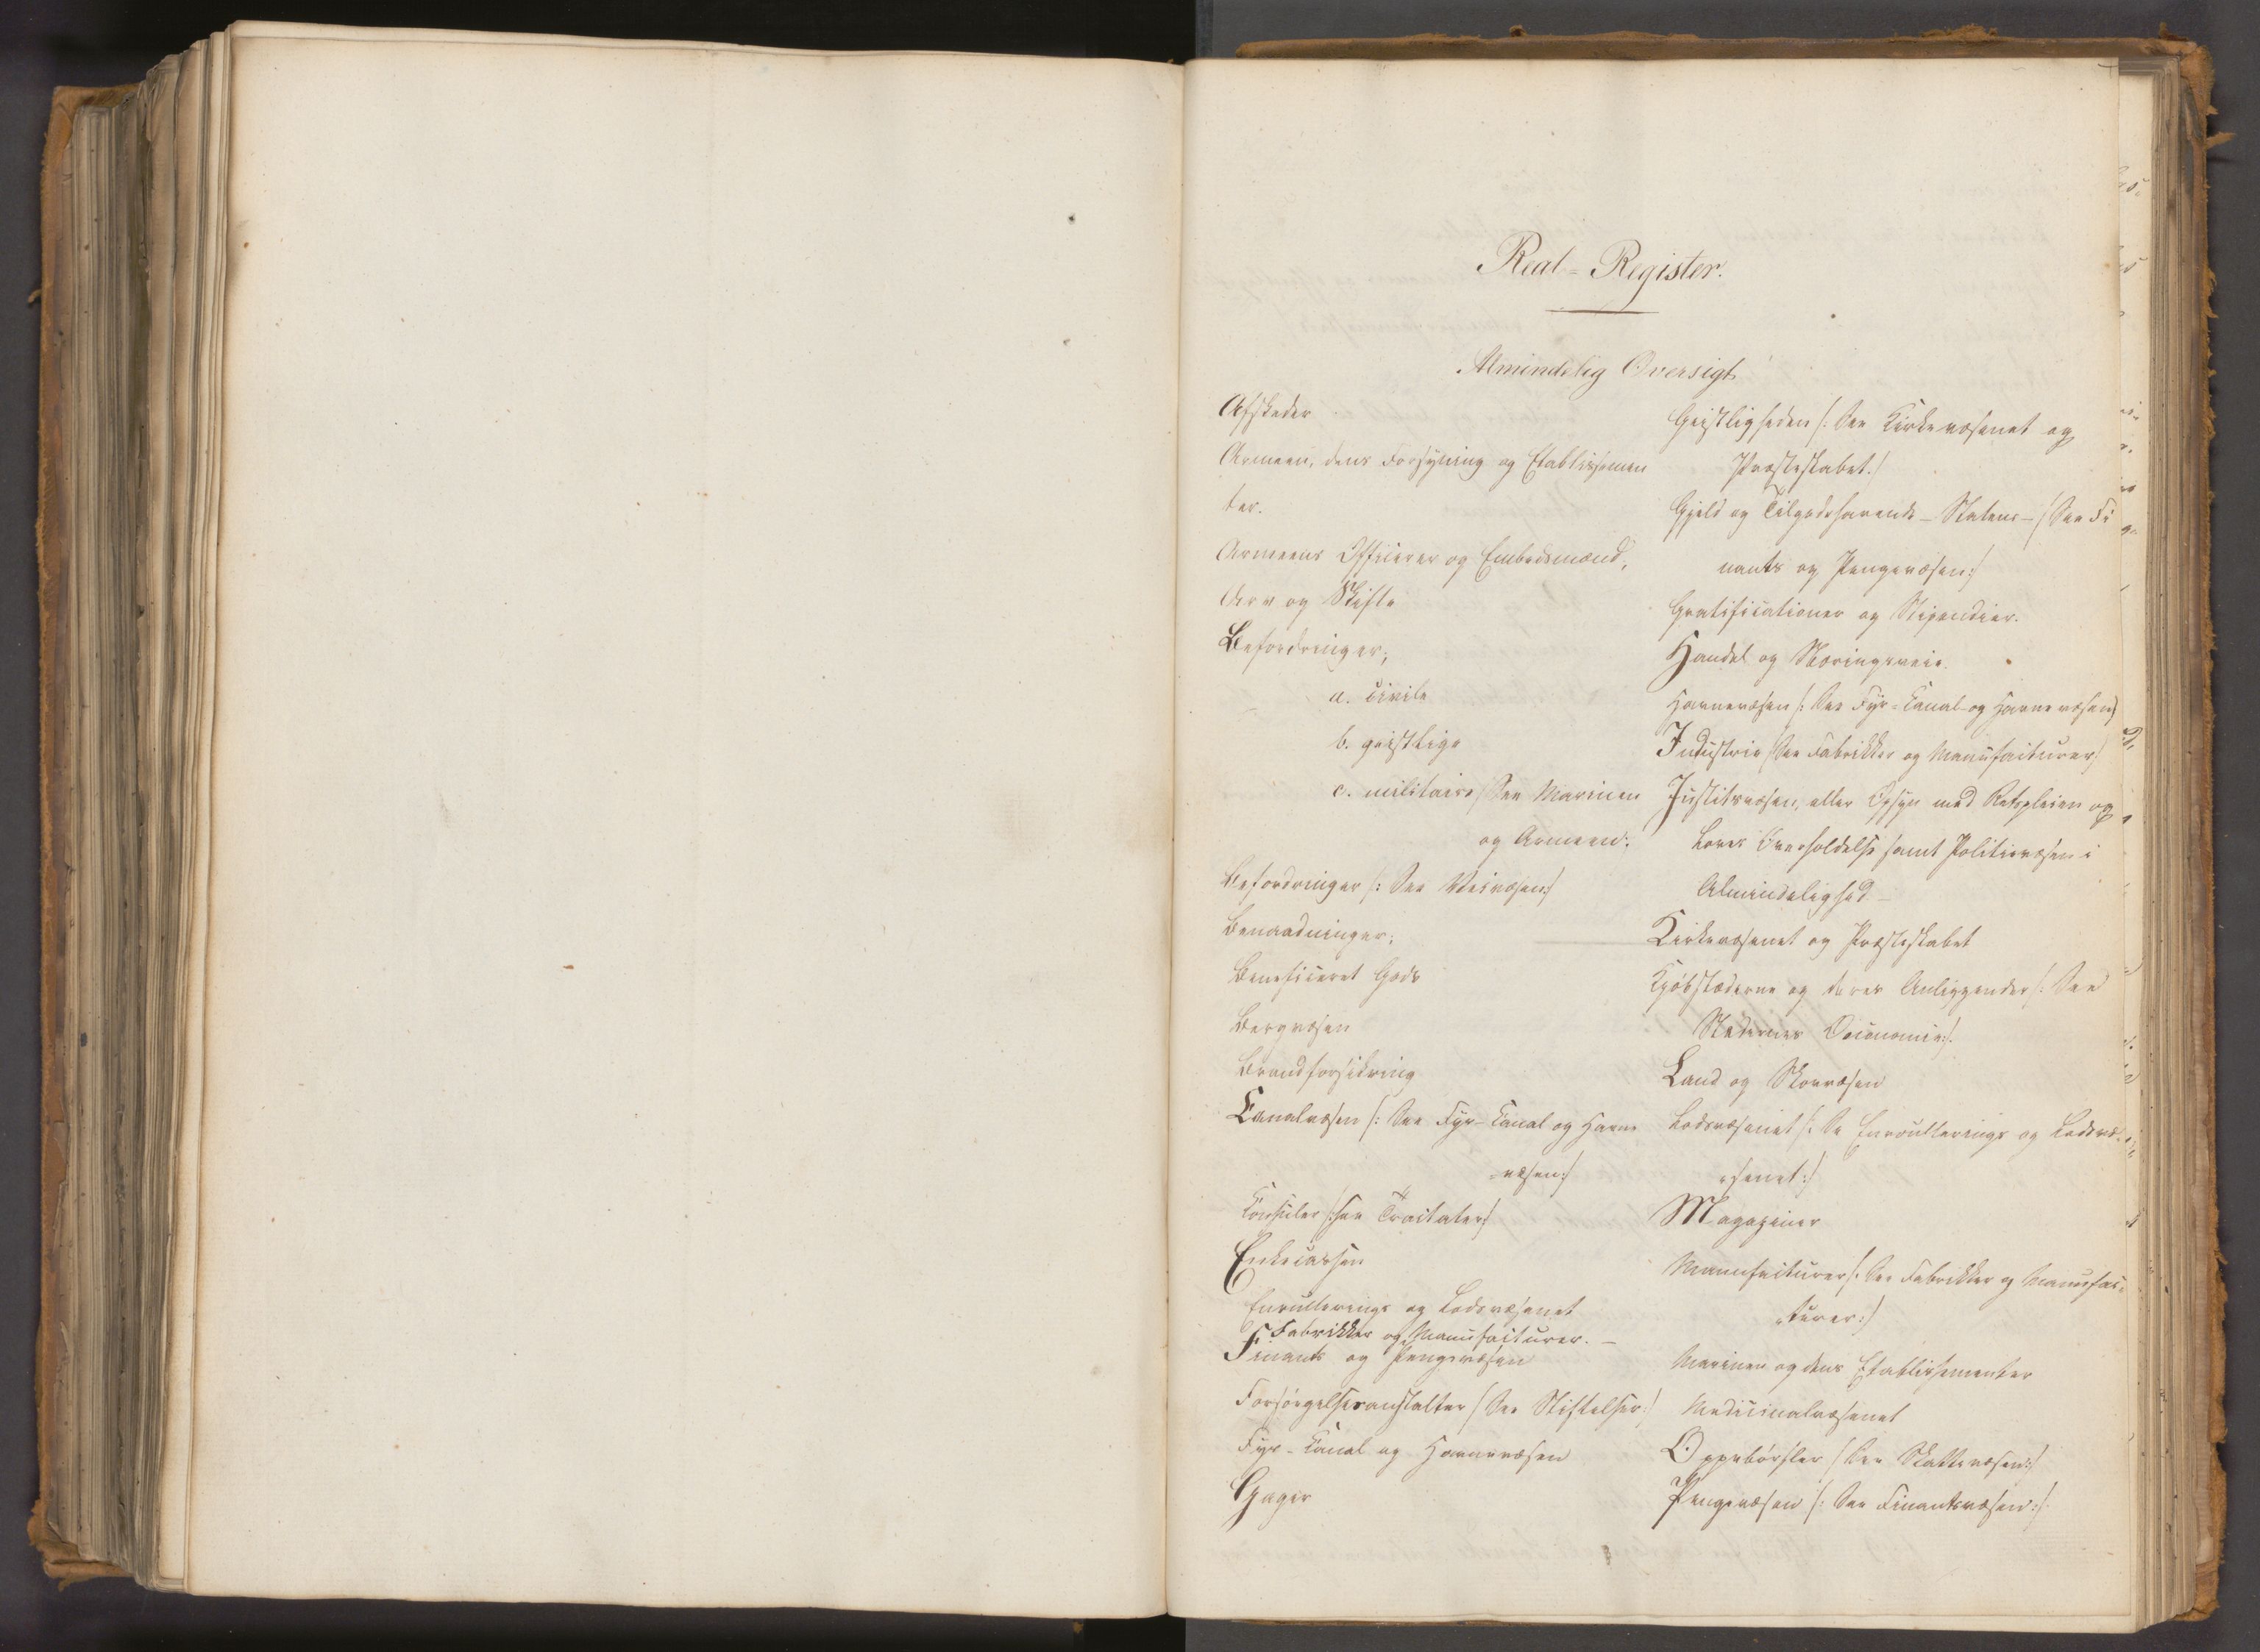 Real-Register.
Almindelig Oversigt
Afskeder
Armeen, dens Forsyning og Etablissemen
ter.
Armeens Officerer og Embedsmænd,
Arv og Skifte
Befordringer,
a. Civile
b. geistlige
c. militaire /See Marinen
og Armeen.
Befordringer /: See Veivæsen:/
Benaadninger.
Beneficeret Gods
Bergvæsen
Brandforsikring
Canalvæsen /: See Fyr-Canal og Havne
væsen:/
Consuler /: See Tractater:/
Enkecassen
Enrullerings og Lodsvæsenet
Fabrikker og Manufacturer. —
Finants og Pengevæsen
Forsörgelsesanstalter /See Stiftelser:/
Fyr-Canal og Havnevæsen
Gager
Geistligheden /: See Kirkevæsenet og
Præsteskabet./
Gjeld og Tilgodehavende — Statens — /See Fi
nants og Pengevæsen:/
Gratificationer og Stipendier.
Handel og Næringsveie.
Havnevæsen /: See Fyr-Canal- og Havnevæsen/
Industrie /See Fabrikker og Manufacturer/
Justitsvæsen, eller Opsyn med Retspleien og
Loves Overholdelse samt Politievæsen i
Almindelighed —
Kirkevæsenet og Præsteskabet
Kjöbstæderne og deres Anliggender /: See
Stædernes Oeconomie:/.
Land og Skovvæsen
Lodsvæsenet /: Se Enroullerings og Lodsvæ-
senet:/
Magaziner
Manufacturer /: See Fabrikker og Manufac-
turer:/
Marinen og dens Etablissementer
Medicinalvæsenet
Oppebörsler /See Skattevæsen:/
Pengevæsen /: See Finantsvæsen:/.